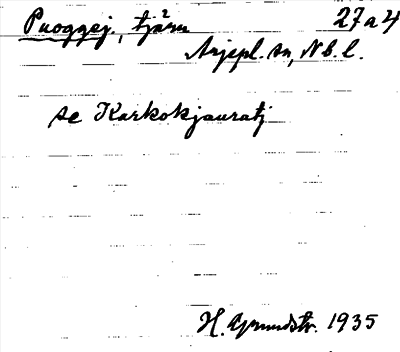 Puoggej., tjärn 27a4
Arjepl. sn, Nb. l.
se Karkokjauratj
H. Grundstr. 1935